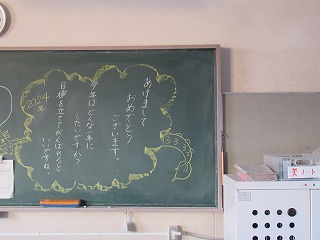 あけまして
おめでとう
ございます。
今年はどんな年に
したいですか？
目標を立ててがんばれると
いいですね。
2024年